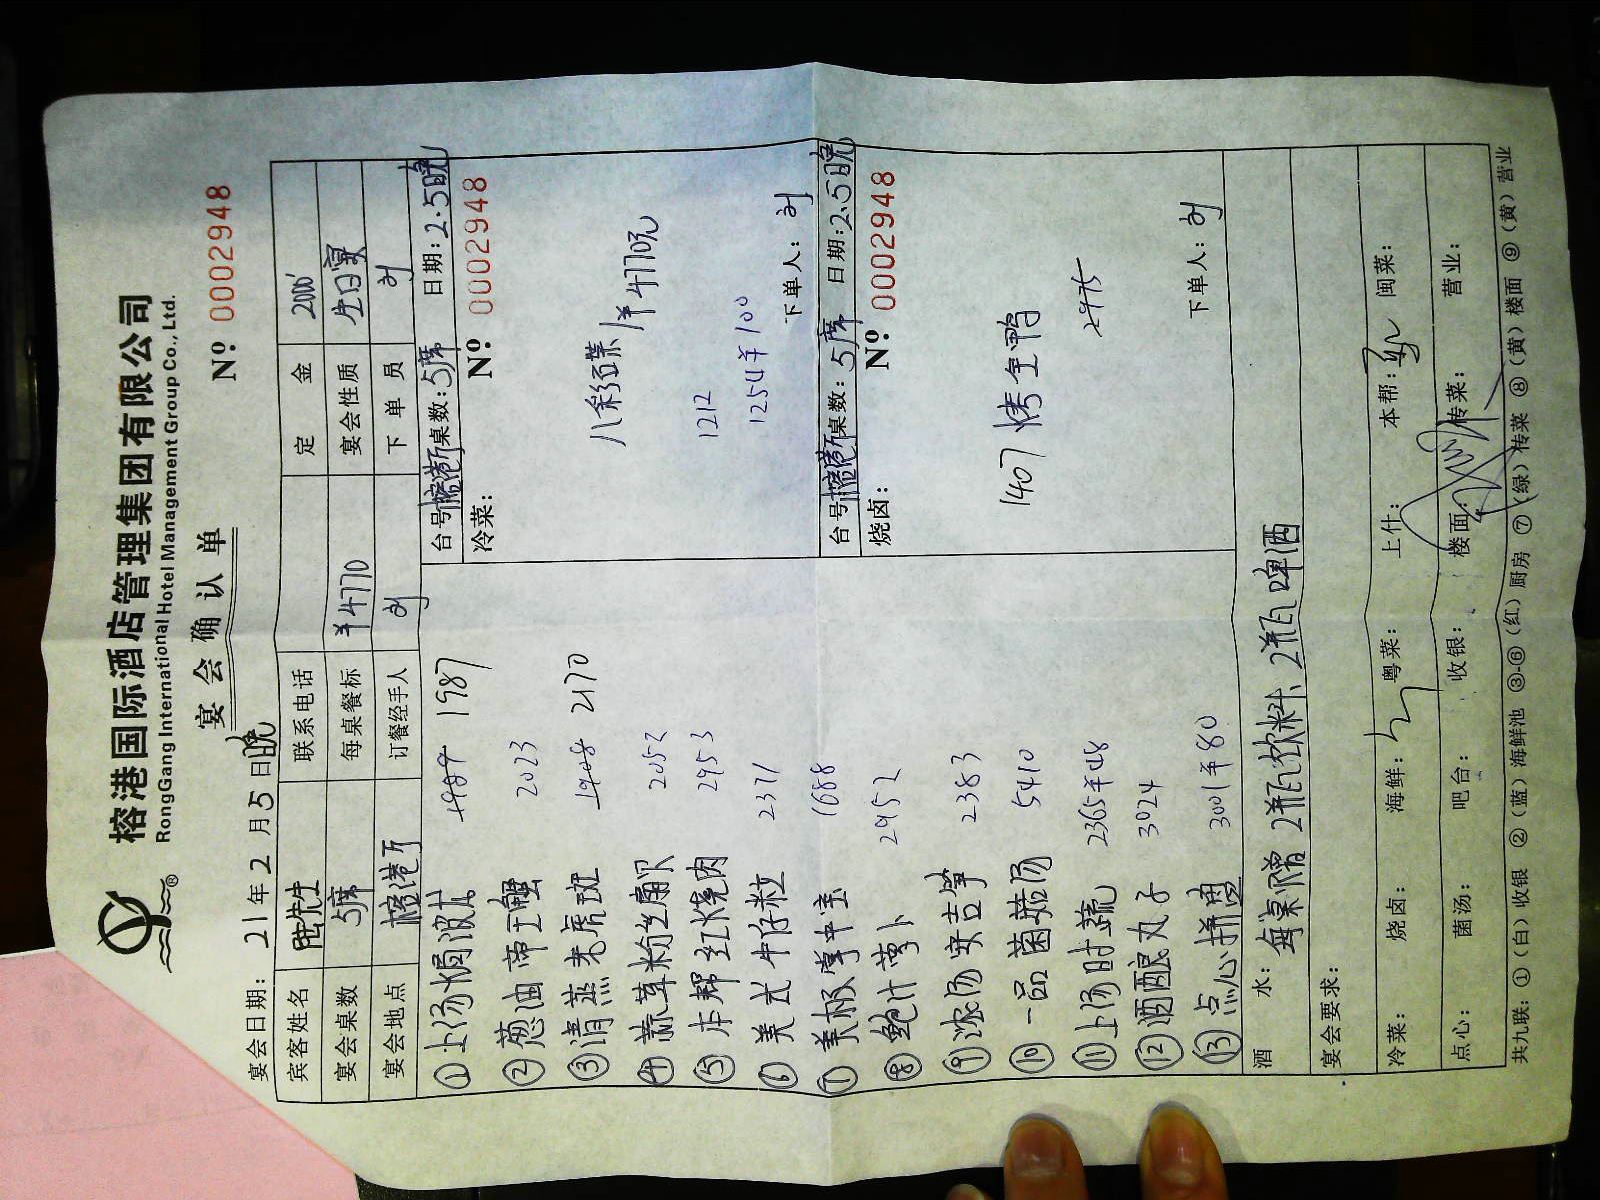 榕港国际酒店管理集团有限公司
RongGang International Hotel Management Group Co., Ltd.
宴会确认单
№ 0002948
宴会日期: 21年2月5日晚
宾客姓名 陆先生 联系电话 定金 2000
宴会桌数 5席 每桌餐标 ¥4770 宴会性质 生日宴
宴会地点 榕港厅 订餐经手人 下单员
①上汤焗波龙 1987
②葱油帝王蟹 2023
③清蒸老虎斑 2170
④蒜茸粉丝扇贝 2052
⑤本帮红烧肉 2953
⑥美式牛仔粒 2371
⑦美极掌中宝 1688
⑧鲍汁萝卜 2952
⑨浓汤安吉笋 2383
⑩一品菌菇汤 5410
⑪上汤时蔬 2365 ¥48
⑫酒酿丸子 3024
⑬点心拼盘 3001 ¥80
台号: 榕港厅 桌数: 5席 日期: 2.5晚
冷菜: № 0002948
八彩冷菜 1¥4770元
1212
1254 ¥100
下单人:
台号: 榕港厅 桌数: 5席 日期: 2.5晚
烧卤: № 0002948
1407 烤全鸭
2975
下单人:
酒水: 每桌赠2瓶饮料、2瓶啤酒
宴会要求:
冷菜: 烧卤: 海鲜: 粤菜: 上什: 本帮: 闽菜:
点心: 菌汤: 吧台: 收银: 楼面: 传菜: 营业:
共九联: ①(白)收银 ②(蓝)海鲜池 ③-⑥(红)厨房 ⑦(绿)传菜 ⑧(黄)楼面 ⑨(黄)营业